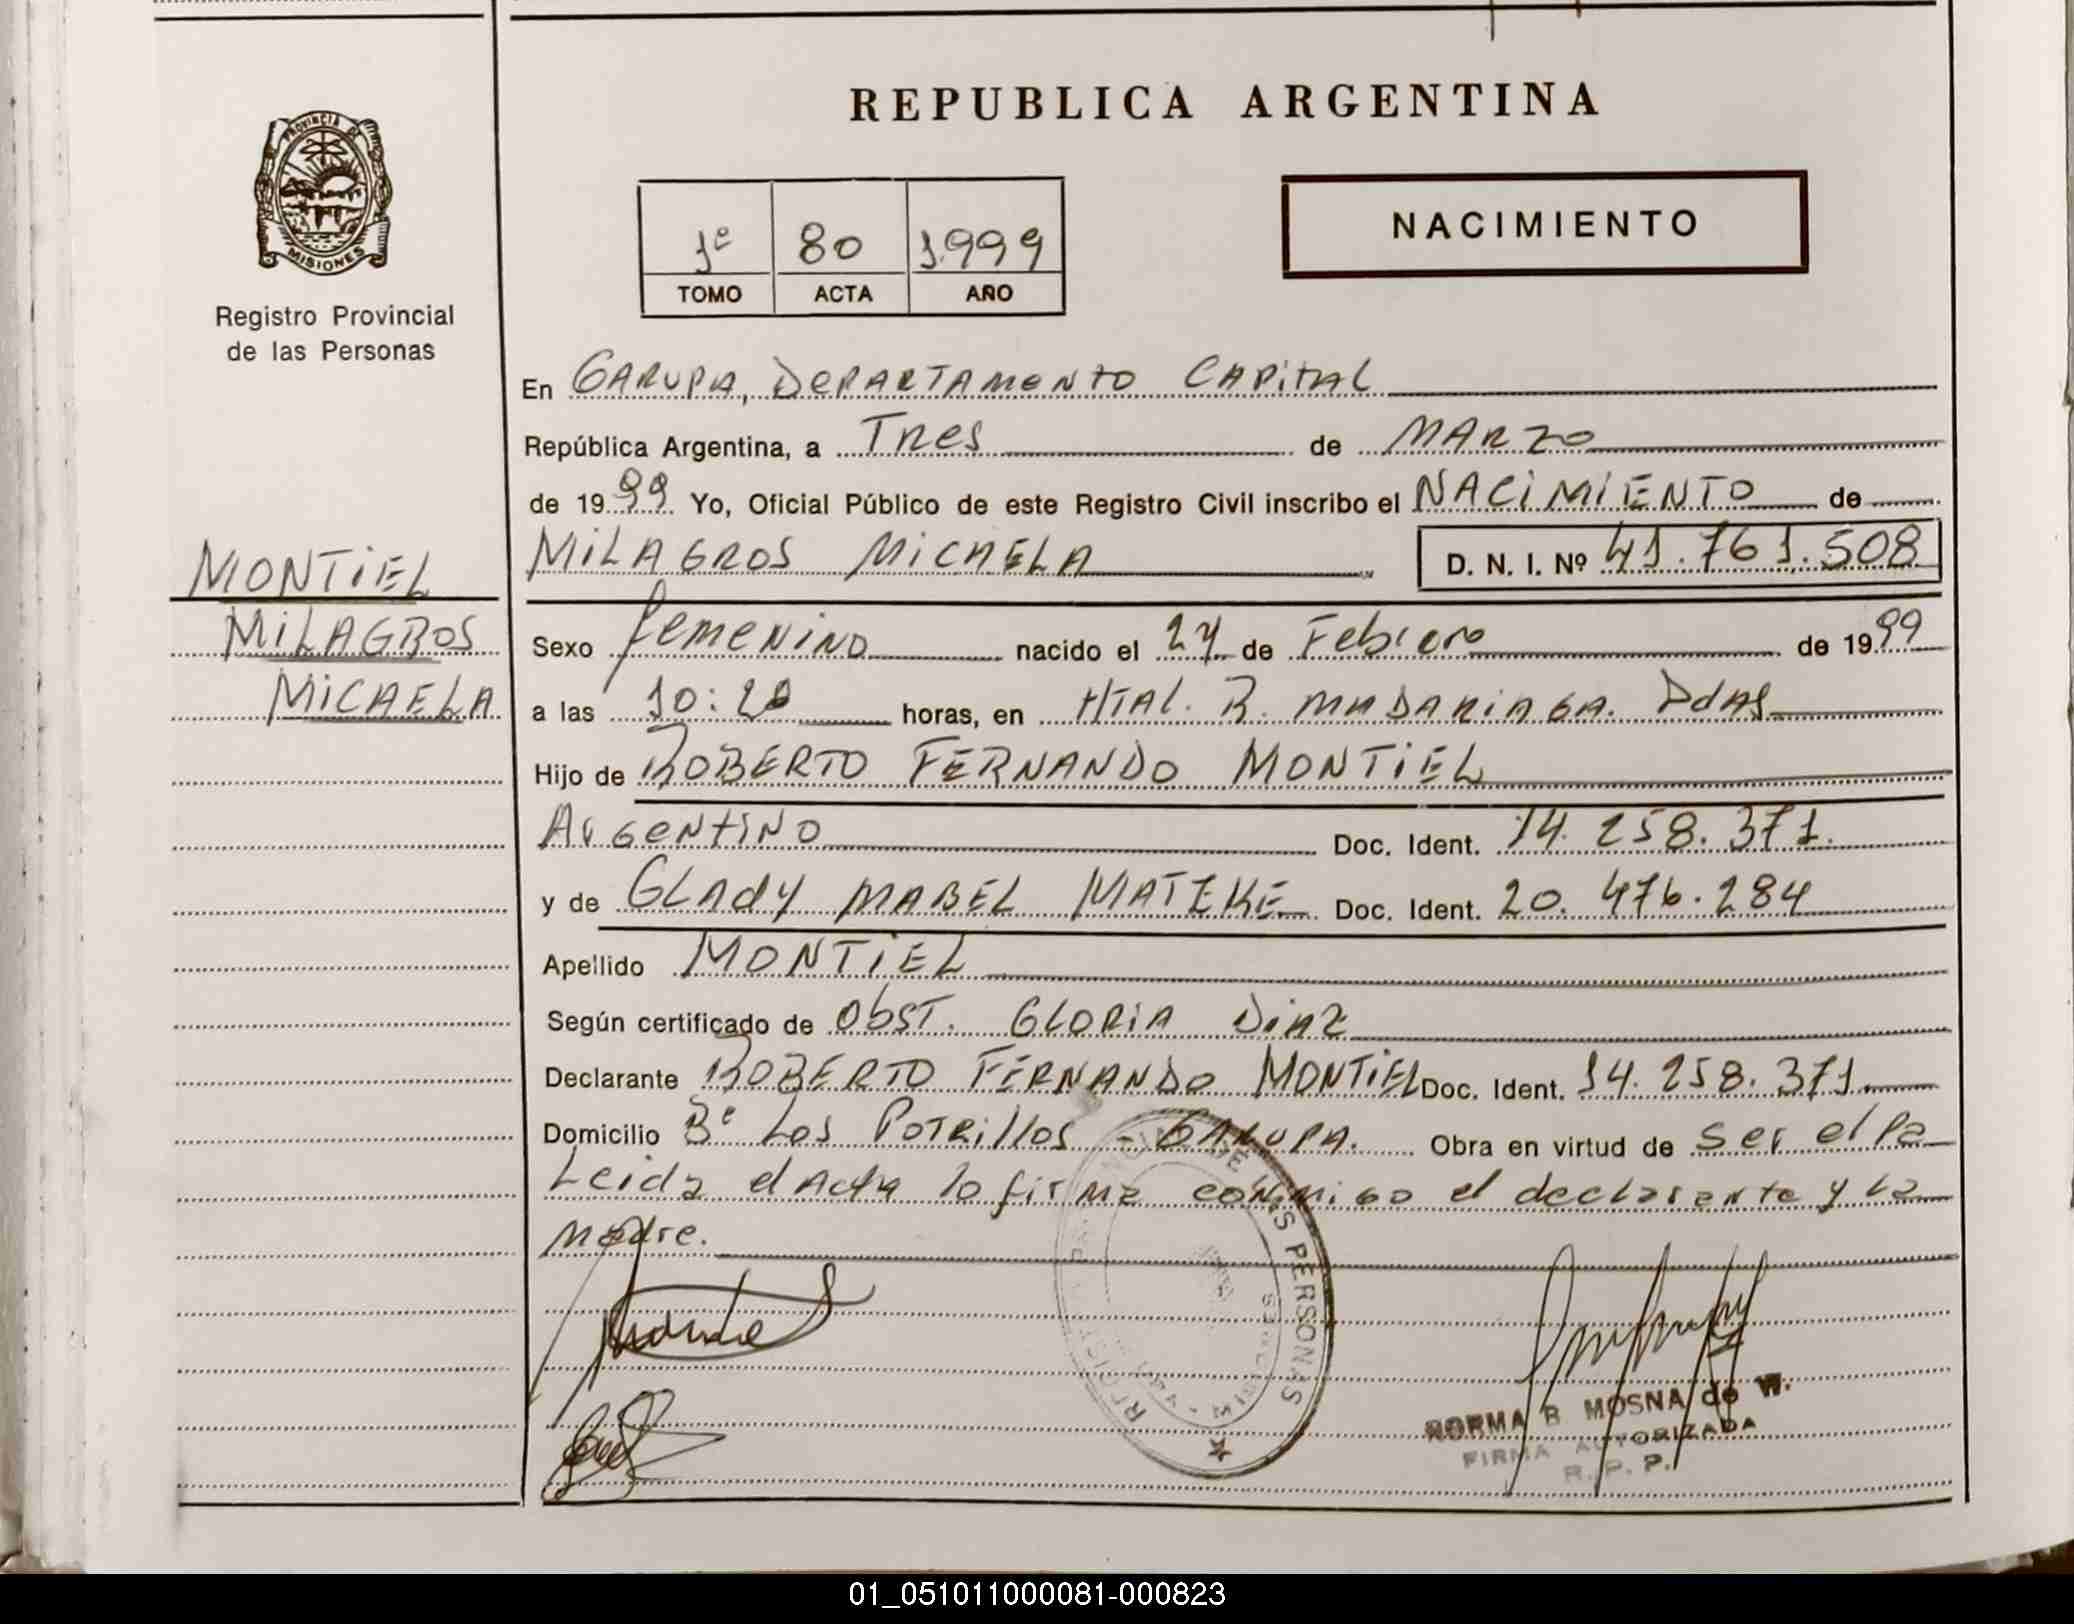 PROVINCIA DE
MISIONES
Registro Provincial
de las Personas
MONTIEL
MILAGROS
MICAELA
REPUBLICA ARGENTINA
1º 80 1.999
TOMO ACTA AÑO
NACIMIENTO
En GARUPA, DEPARTAMENTO CAPITAL
República Argentina, a Tres de MARZO
de 1999 Yo, Oficial Público de este Registro Civil inscribo el NACIMIENTO de
MILAGROS MICAELA D. N. I. Nº 41.761.508
Sexo femenino nacido el de Febrero de 1999
a las 10:20 horas, en HTAL. R. MADARIAGA. PDAS
Hijo de ROBERTO FERNANDO MONTIEL
Argentino Doc. Ident. 14.258.371.
y de GLADY MABEL Doc. Ident. 20.476.284
Apellido MONTIEL
Según certificado de Obst. GLORIA DIAZ
Declarante ROBERTO FERNANDO MONTIEL Doc. Ident. 14.258.371
Domicilio Bº Los POTRILLOS - GARUPA. Obra en virtud de ser el Pa
Leida el Acta lo firma conmigo el declarante y la
madre.
DE LAS PERSONAS
MISIONES
NORMA B MOSNA de W.
FIRMA AUTORIZADA
R. P. P.
01_051011000081-000823